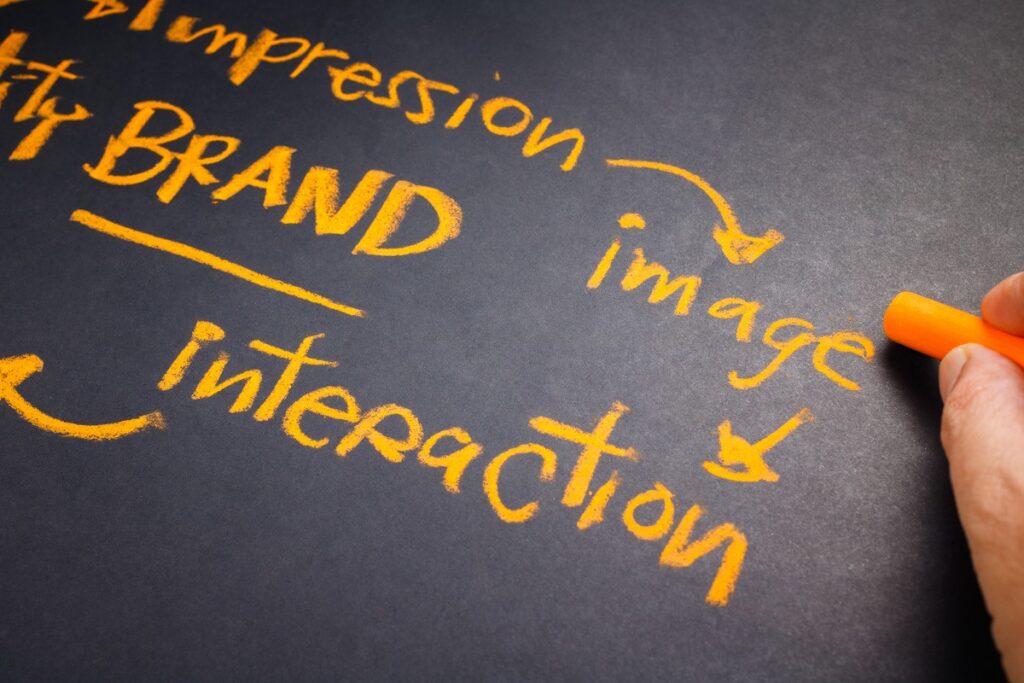 impression
BRAND
image
interaction